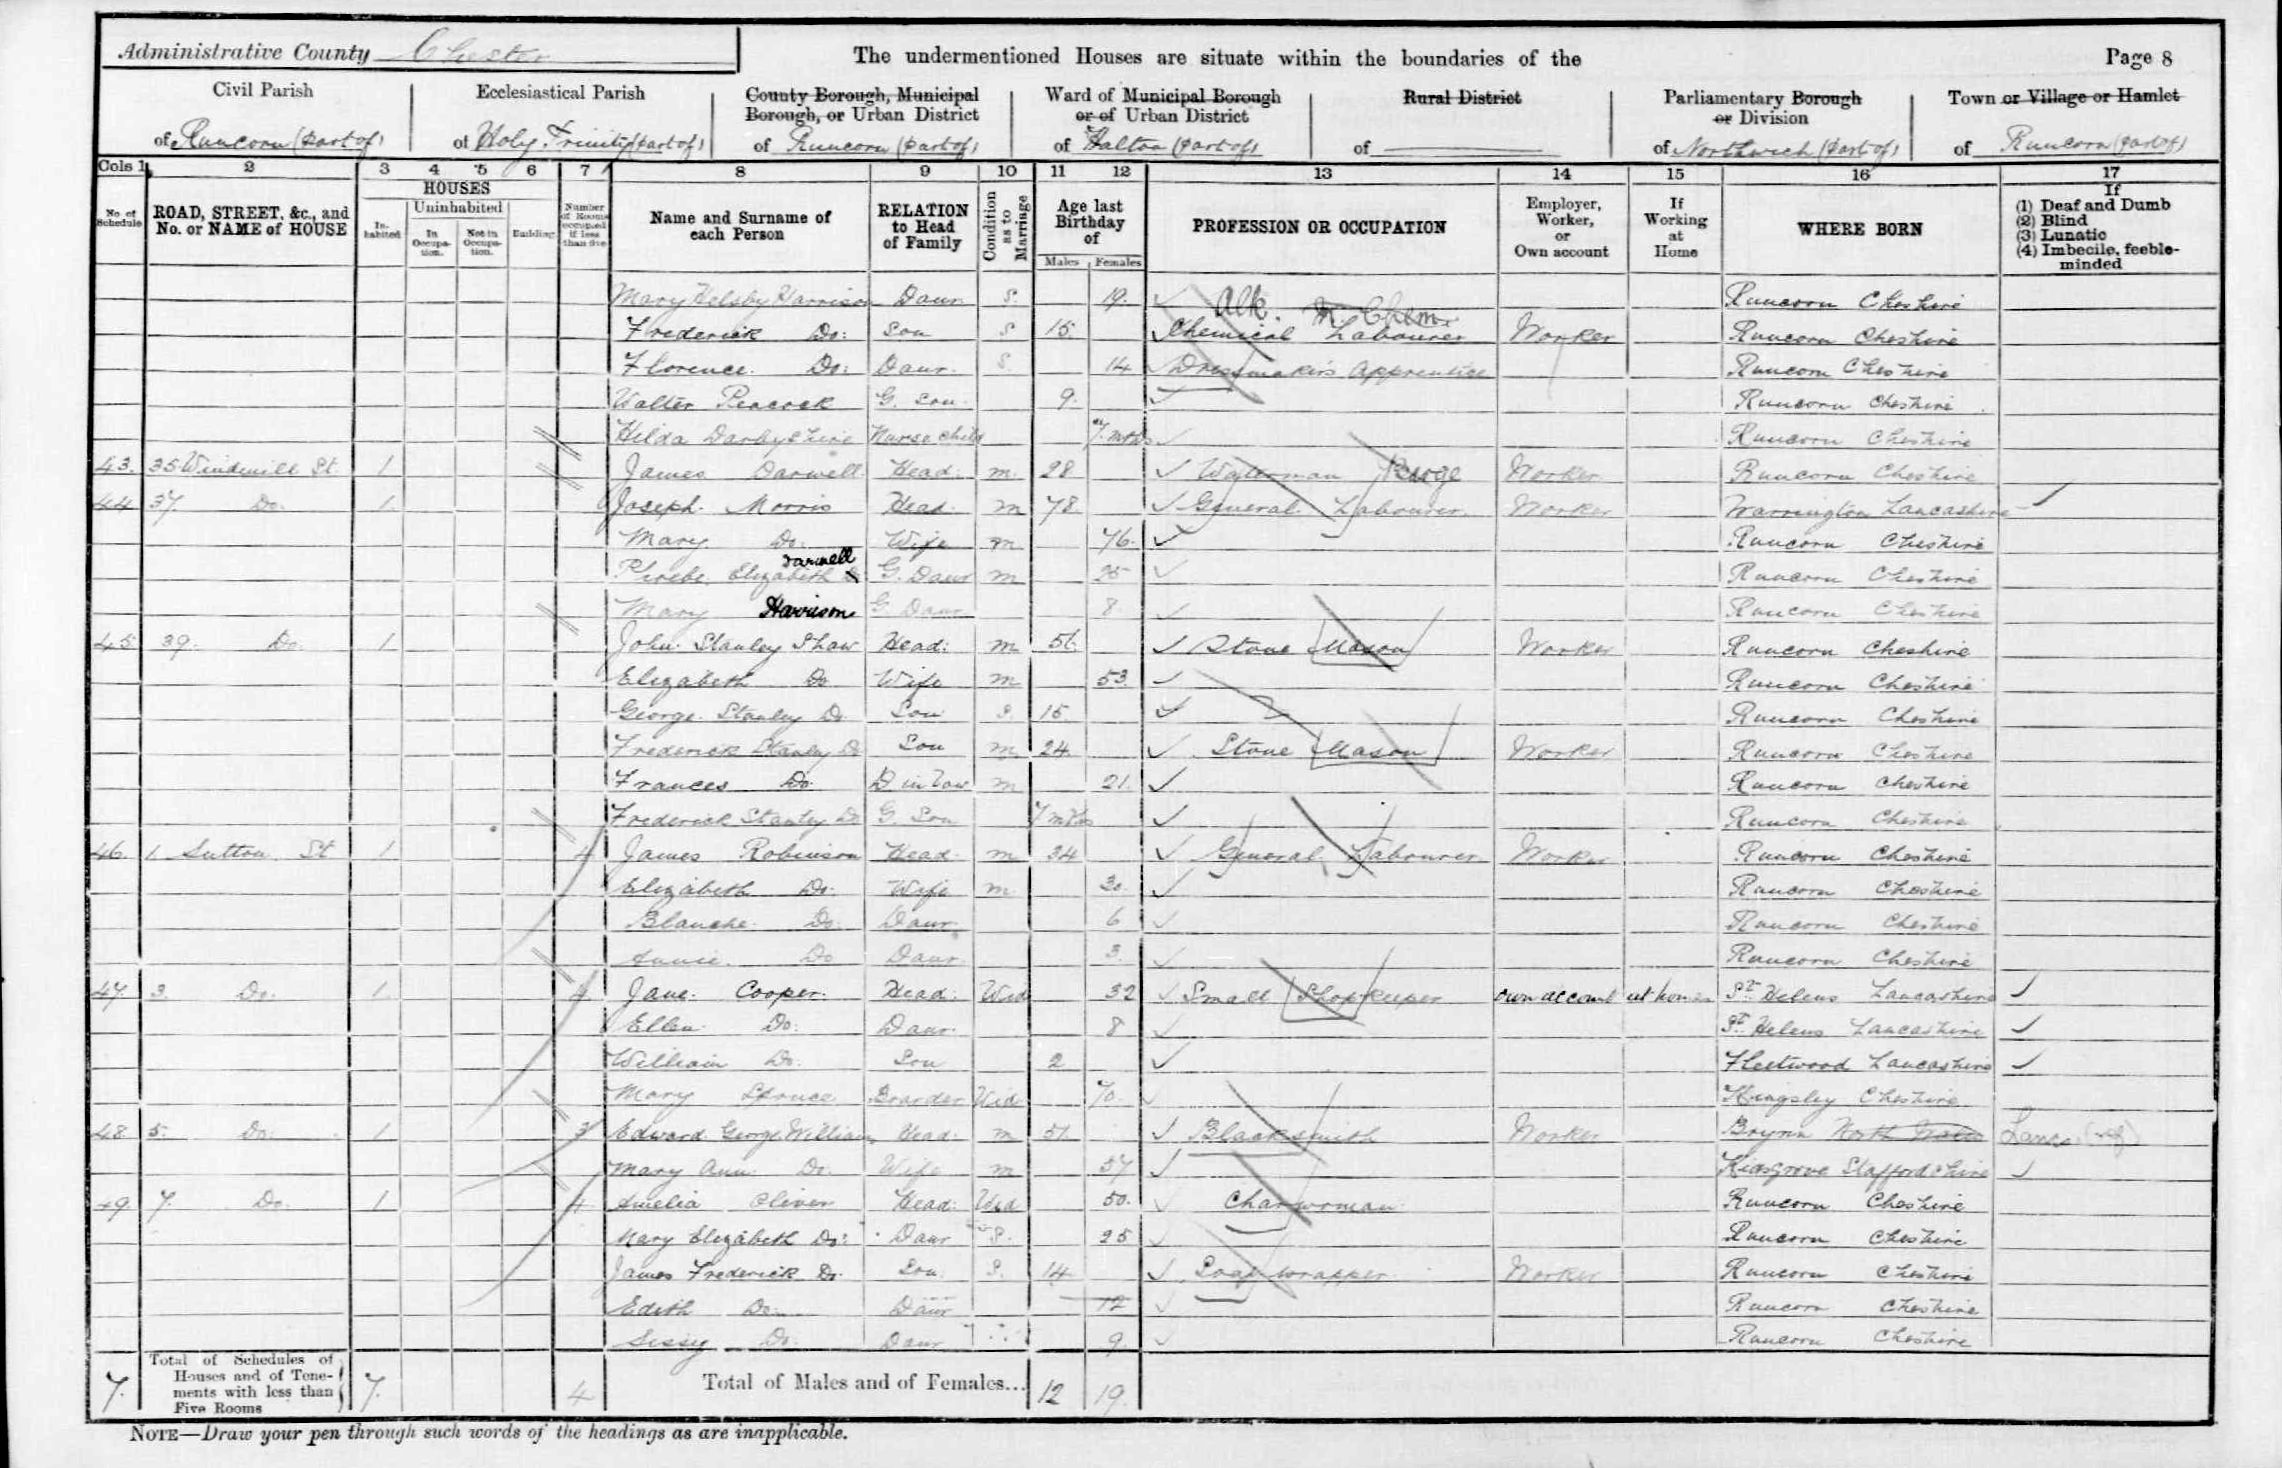 Administrative County Chester
The undermentioned Houses are situate within the boundaries of the
Page 8
Civil Parish of Runcorn (part of)
Ecclesiastical Parish of Holy Trinity (part of)
County Borough, Municipal Borough, or Urban District of Runcorn (part of)
Ward of Municipal Borough or of Urban District of Halton (part of)
Rural District of
Parliamentary Borough or Division of Northwich (part of)
Town or Village or Hamlet of Runcorn (part of)
Cols 1 2 3 4 5 6 7 8 9 10 11 12 13 14 15 16 17
No. of Schedule
ROAD, STREET, &c., and No. or NAME of HOUSE
HOUSES
Inhabited
Uninhabited
In Occupation.
Not in Occupation.
Building
Number of Rooms occupied if less than five
Name and Surname of each Person
RELATION to Head of Family
Condition as to Marriage
Age last Birthday of
Males Females
PROFESSION OR OCCUPATION
Employer, Worker, or Own account
If Working at Home
WHERE BORN
If
(1) Deaf and Dumb
(2) Blind
(3) Lunatic
(4) Imbecile, feeble-minded
Mary Helsby Harrison Daur. S. 19. Runcorn Cheshire
Alk. M. Chem.
Frederick Do: Son S 15. Chemical Labourer Worker Runcorn Cheshire
Florence. Do: Daur. S. 14 Dressmakers Apprentice Runcorn Cheshire
Walter Peacock G. Son. 9. Runcorn Cheshire
Hilda Darbyshire Nurse Child 7. mths Runcorn Cheshire
43. 35 Windmill St. 1 James Darwell Head: m. 28 Waterman Barge Worker Runcorn Cheshire
44 37. Do. 1. Joseph. Morris Head. m 78. General Labourer. Worker Warrington Lancashire
Mary Do. Wife m 76. Runcorn Cheshire
Phoebe Elizabeth Do Darwell G. Daur m 25 Runcorn Cheshire
Mary Harrison G. Daur. 8. Runcorn Cheshire
45 39. Do. 1 John. Stanley Shaw Head: m 56. Stone Mason Worker Runcorn Cheshire
Elizabeth Do Wife m 53. Runcorn Cheshire
George. Stanley Do Son S. 15. Runcorn Cheshire
Frederick Stanley Do Son m 24. Stone Mason Worker Runcorn Cheshire
Frances Do. D in law m 21. Runcorn Cheshire
Frederick Stanley Do G. Son 7 mths Runcorn Cheshire
46. 1. Sutton St 1 4 James Robinson Head. m 34 General Labourer Worker Runcorn Cheshire
Elizabeth Do. Wife m 30. Runcorn Cheshire
Blanche. Do. Daur. 6 Runcorn Cheshire
Annie. Do Daur. 3. Runcorn Cheshire
47. 3. Do. 1. 4 Jane. Cooper. Head: Wid 32 Small Shopkeeper own account at home St. Helens Lancashire
Ellen Do: Daur. 8 St. Helens Lancashire
William Do. Son 2 Fleetwood Lancashire
Mary Spruce Boarder Wid 70. Kingsley Cheshire
48. 5. Do. 1 3 Edward George Williams Head: m 51. Blacksmith Worker Brynn North Wales Lancs
Mary Ann Do. Wife m 57 Kidsgrove Staffordshire
49. 7. Do. 1 4 Amelia Oliver Head: Wid 50. Charwoman Runcorn Cheshire
Mary Elizabeth Do: Daur S. 25 Runcorn Cheshire
James Frederick Do. Son. S. 14 Soap wrapper Worker Runcorn Cheshire
Edith Do. Daur 12 Runcorn Cheshire
Sissy Do. Daur 9. Runcorn Cheshire
7. Total of Schedules of Houses and of Tenements with less than Five Rooms 7. 4 Total of Males and of Females... 12 19.
NOTE—Draw your pen through such words of the headings as are inapplicable.